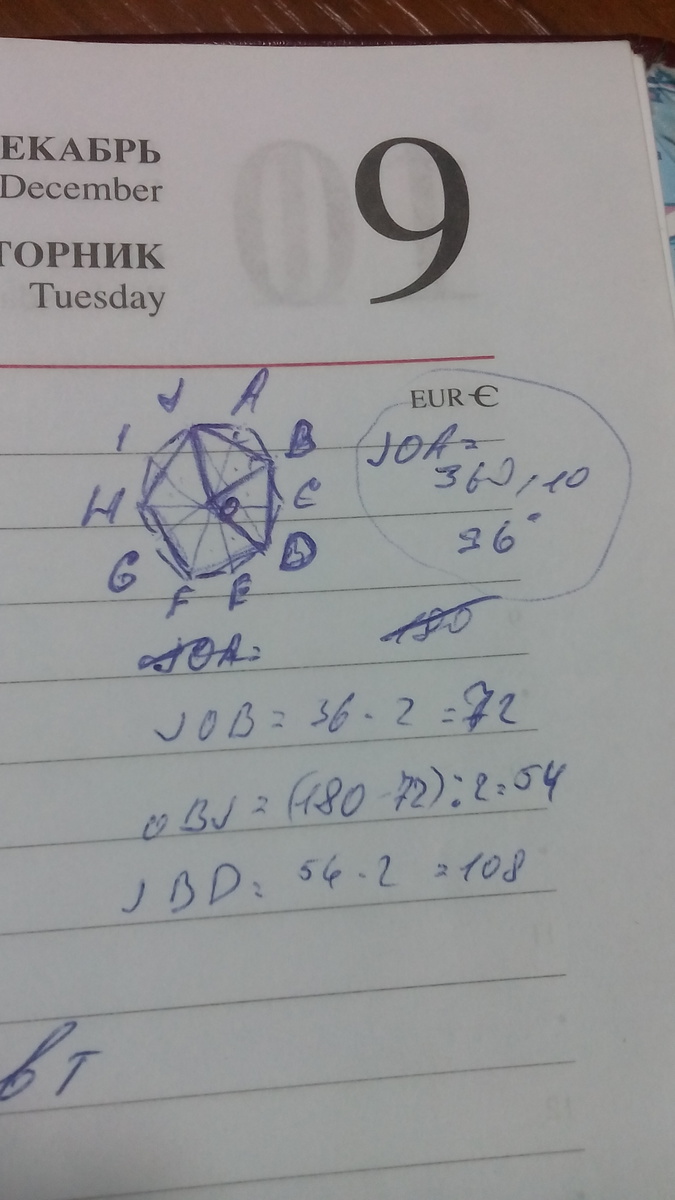 ЕКАБРЬ
December
ТОРНИК
Tuesday
10
9
EUR €
J A
I B
H O C
G D
F E
JOA =
360 : 10
36°
JOA =
180
JOB = 36 · 2 = 72
OBJ = (180 - 72) : 2 = 54
JBD = 54 · 2 = 108